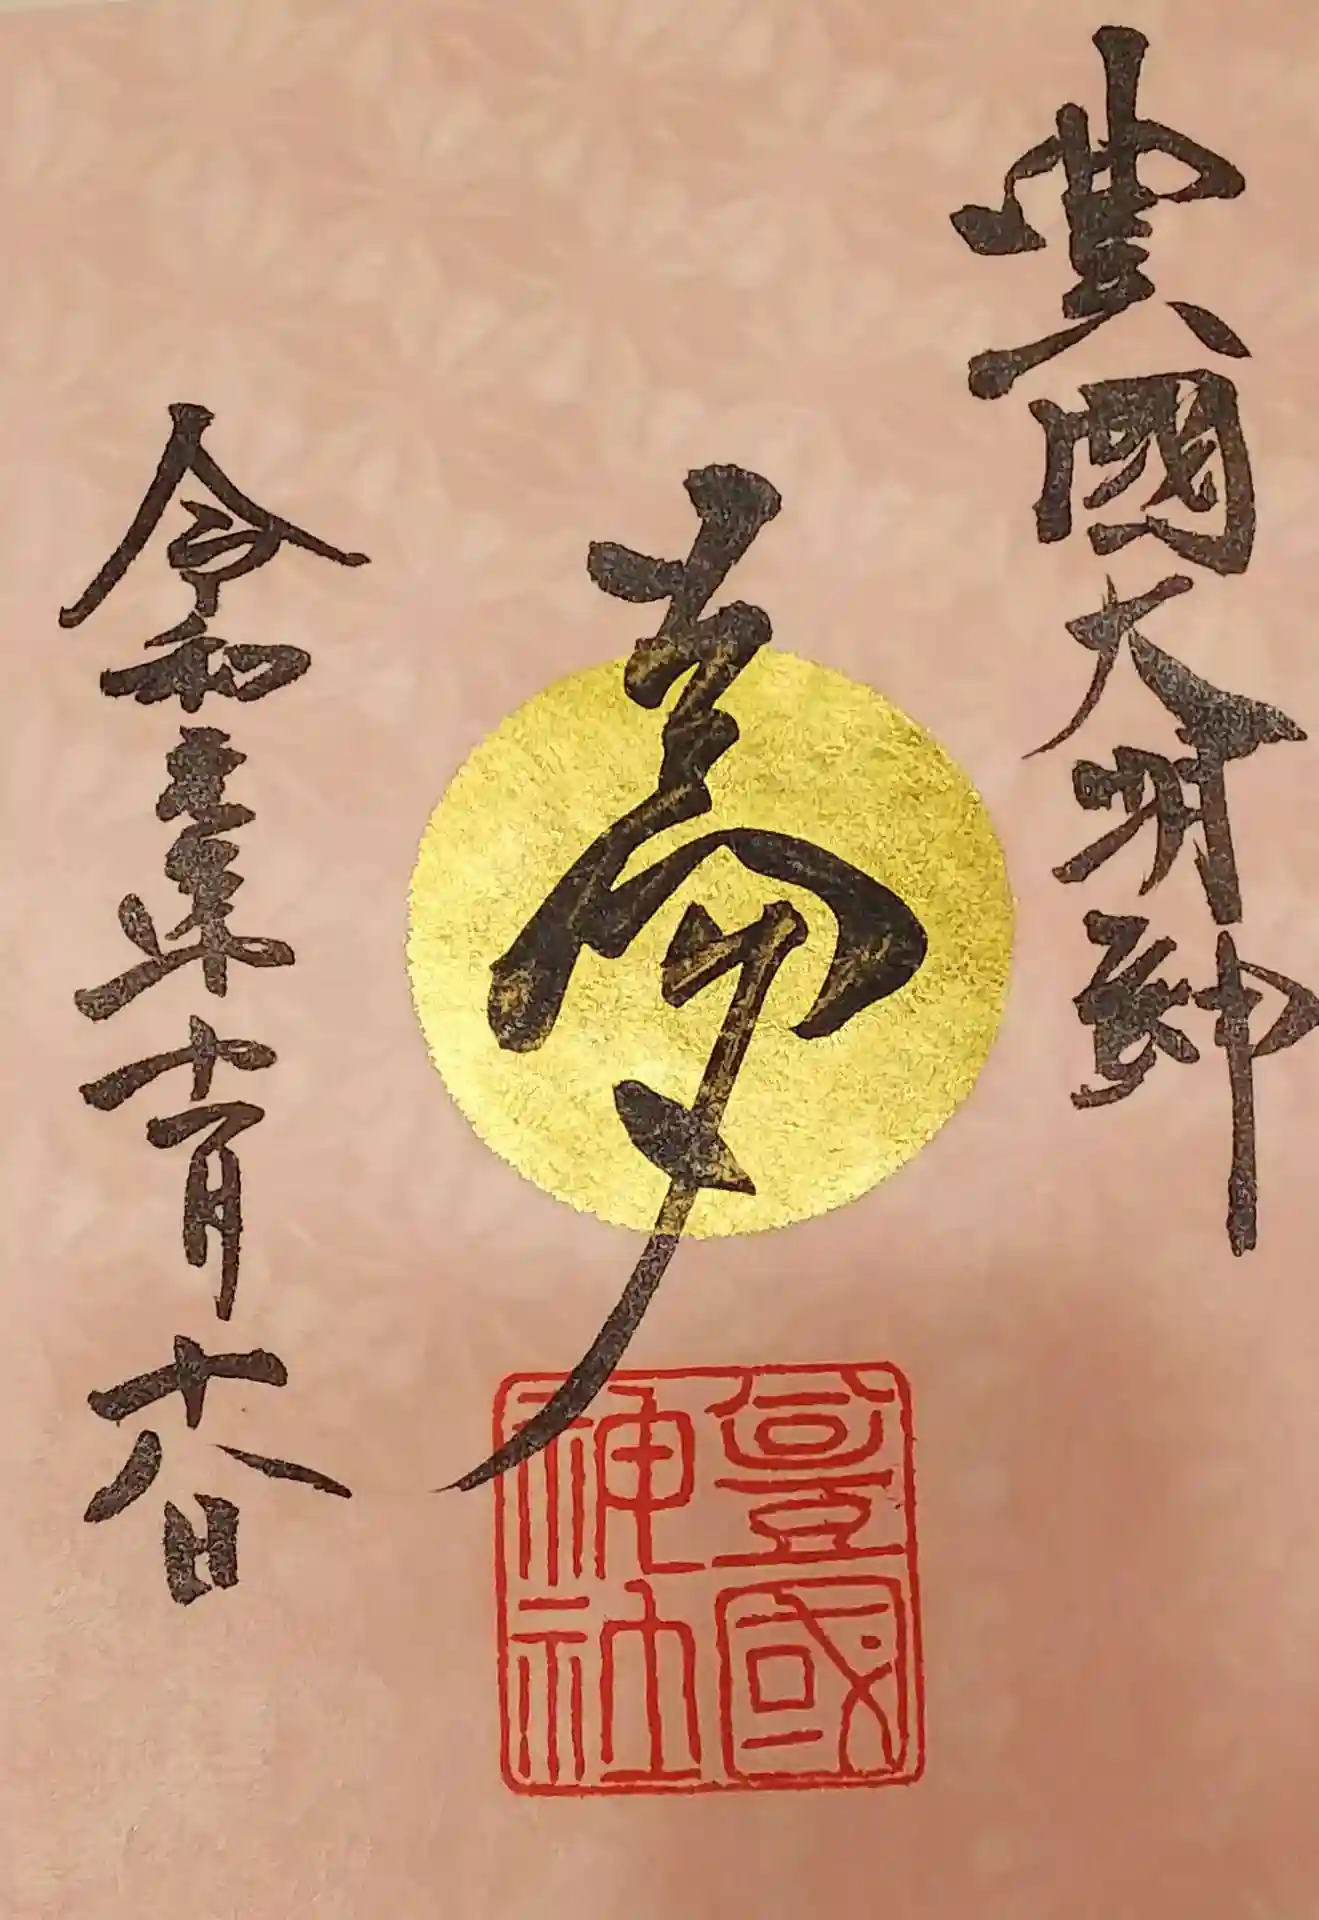 豊國大明神
夢
令和年十月十八日
豊國
神社